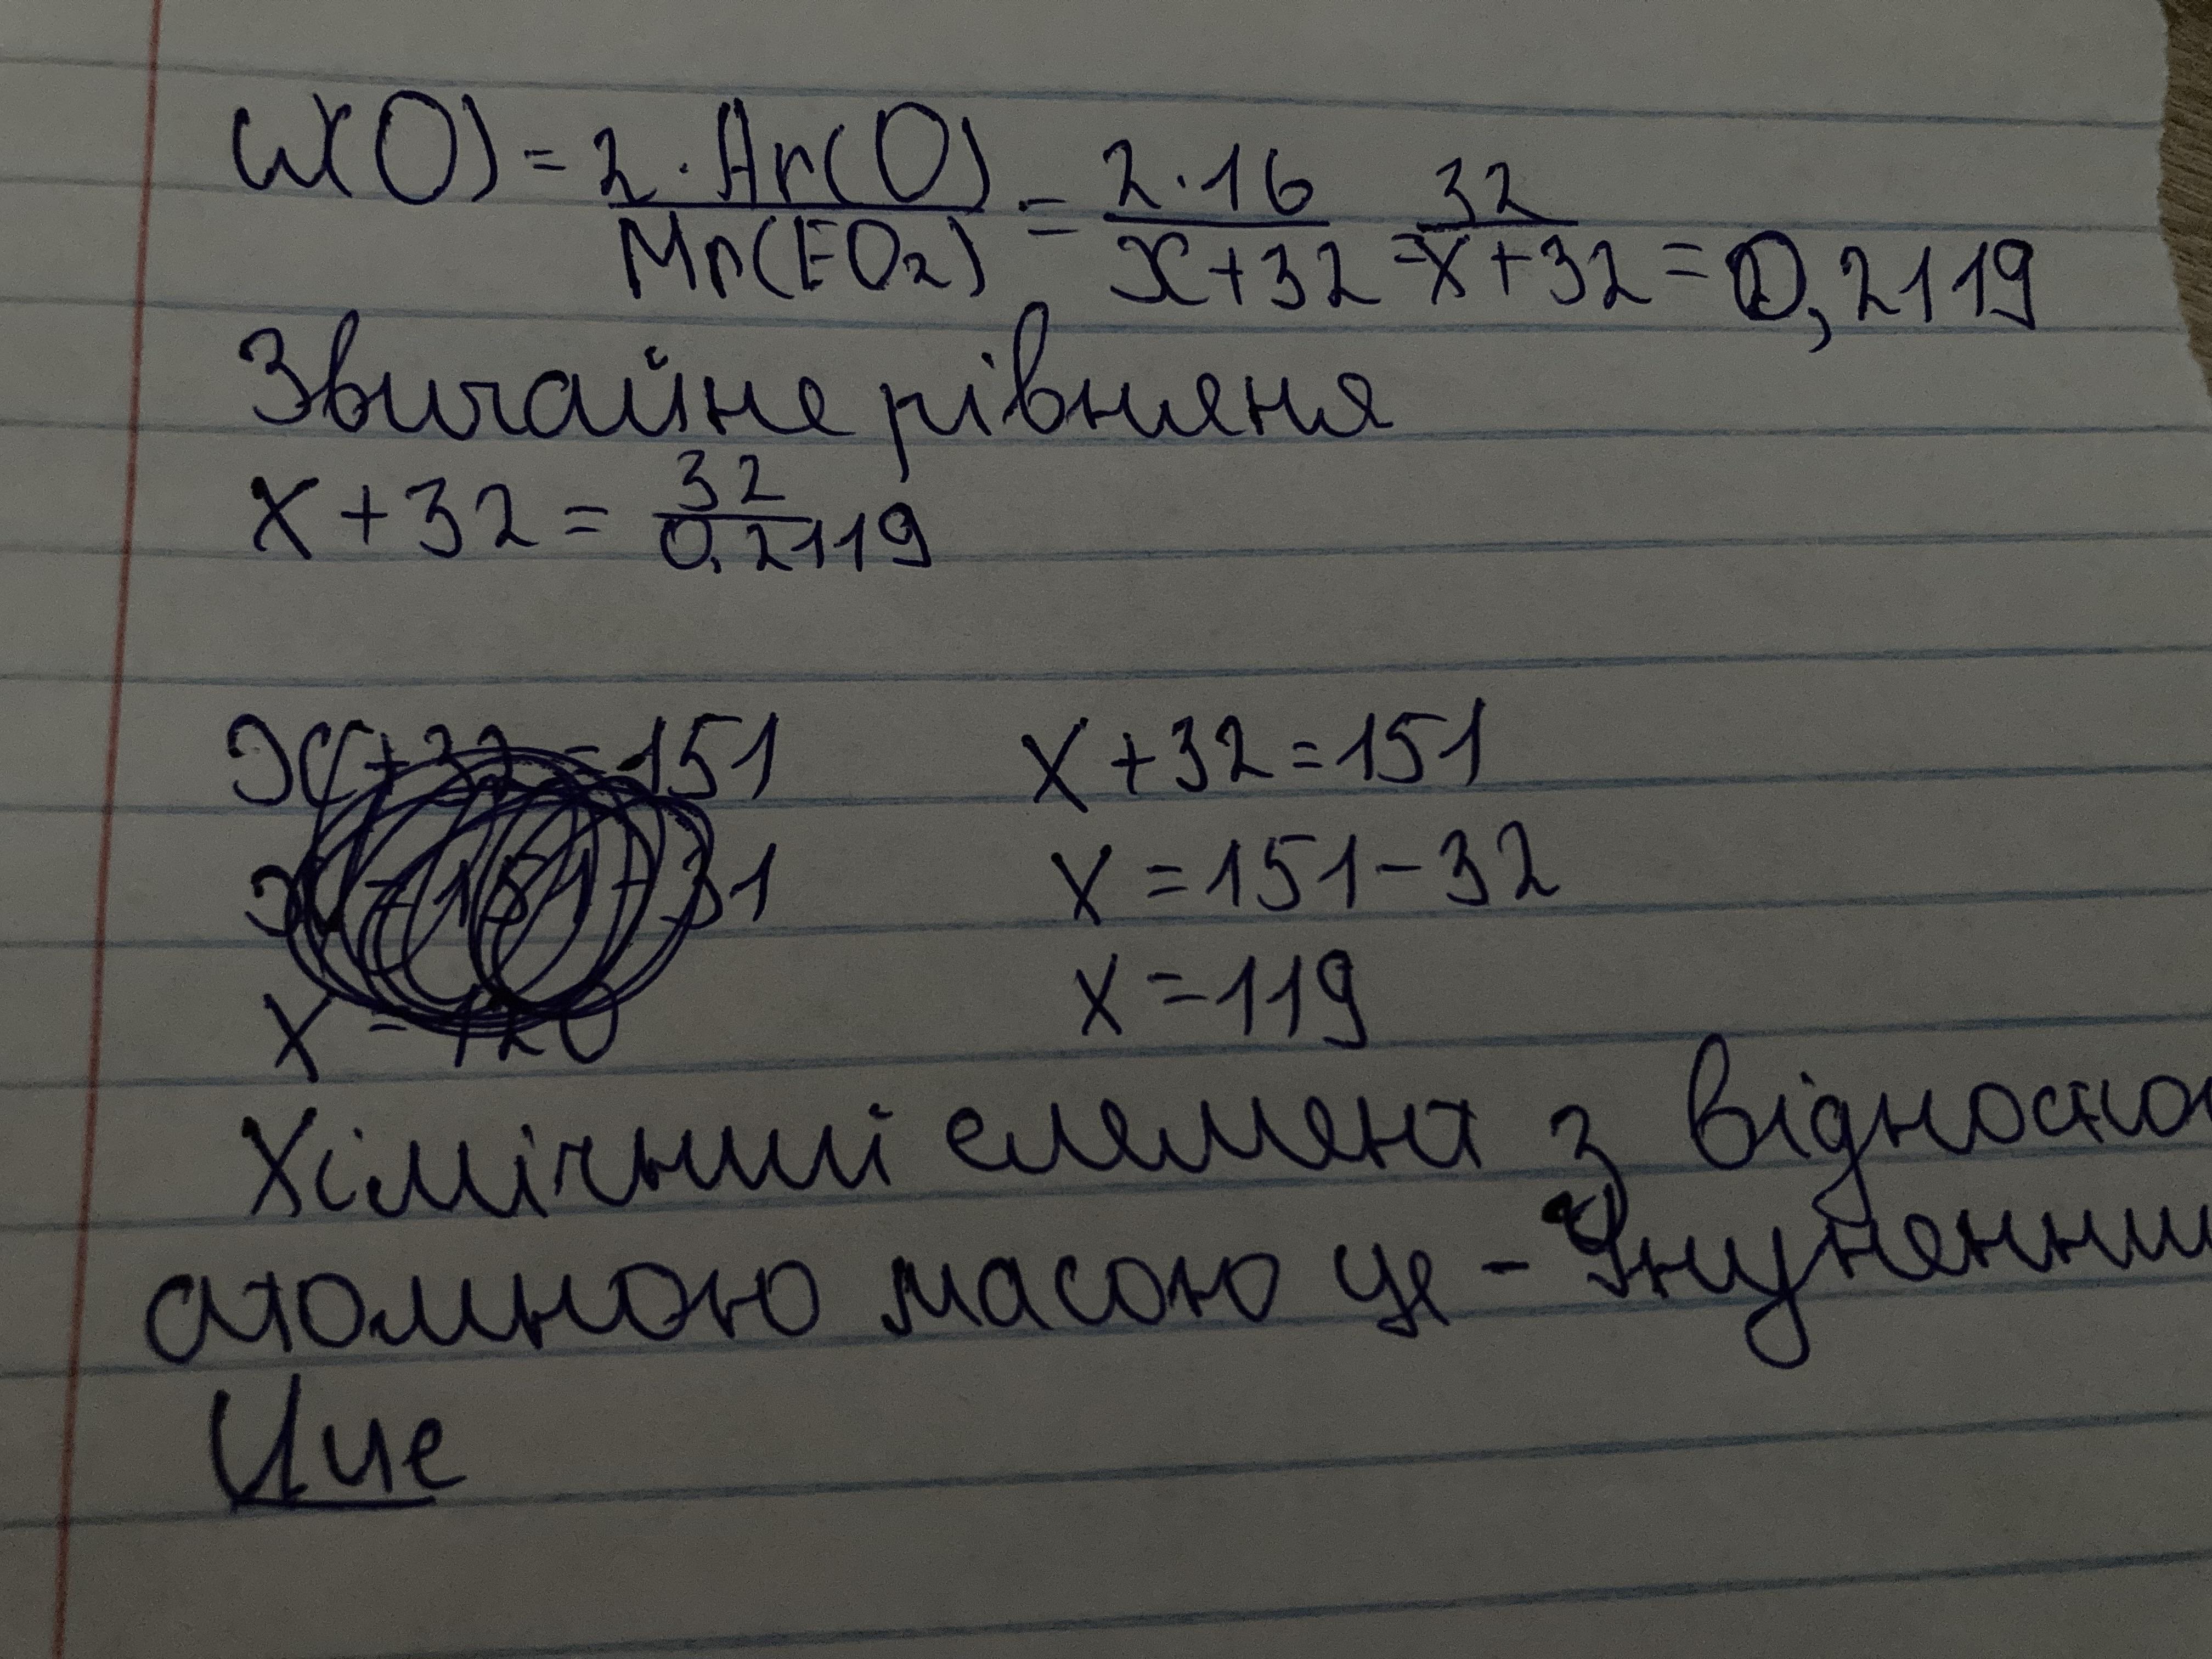 W(O) = 2·Ar(O)/Mr(EO₂) = 2·16/x+32 = 32/x+32 = 0,2119
Звичайне рівняня
x+32 = 32/0,2119
x+32=151 x+32=151
x=151-31 x=151-32
x=120 x=119
Хімічний елемент з відносно
атомною масою це -